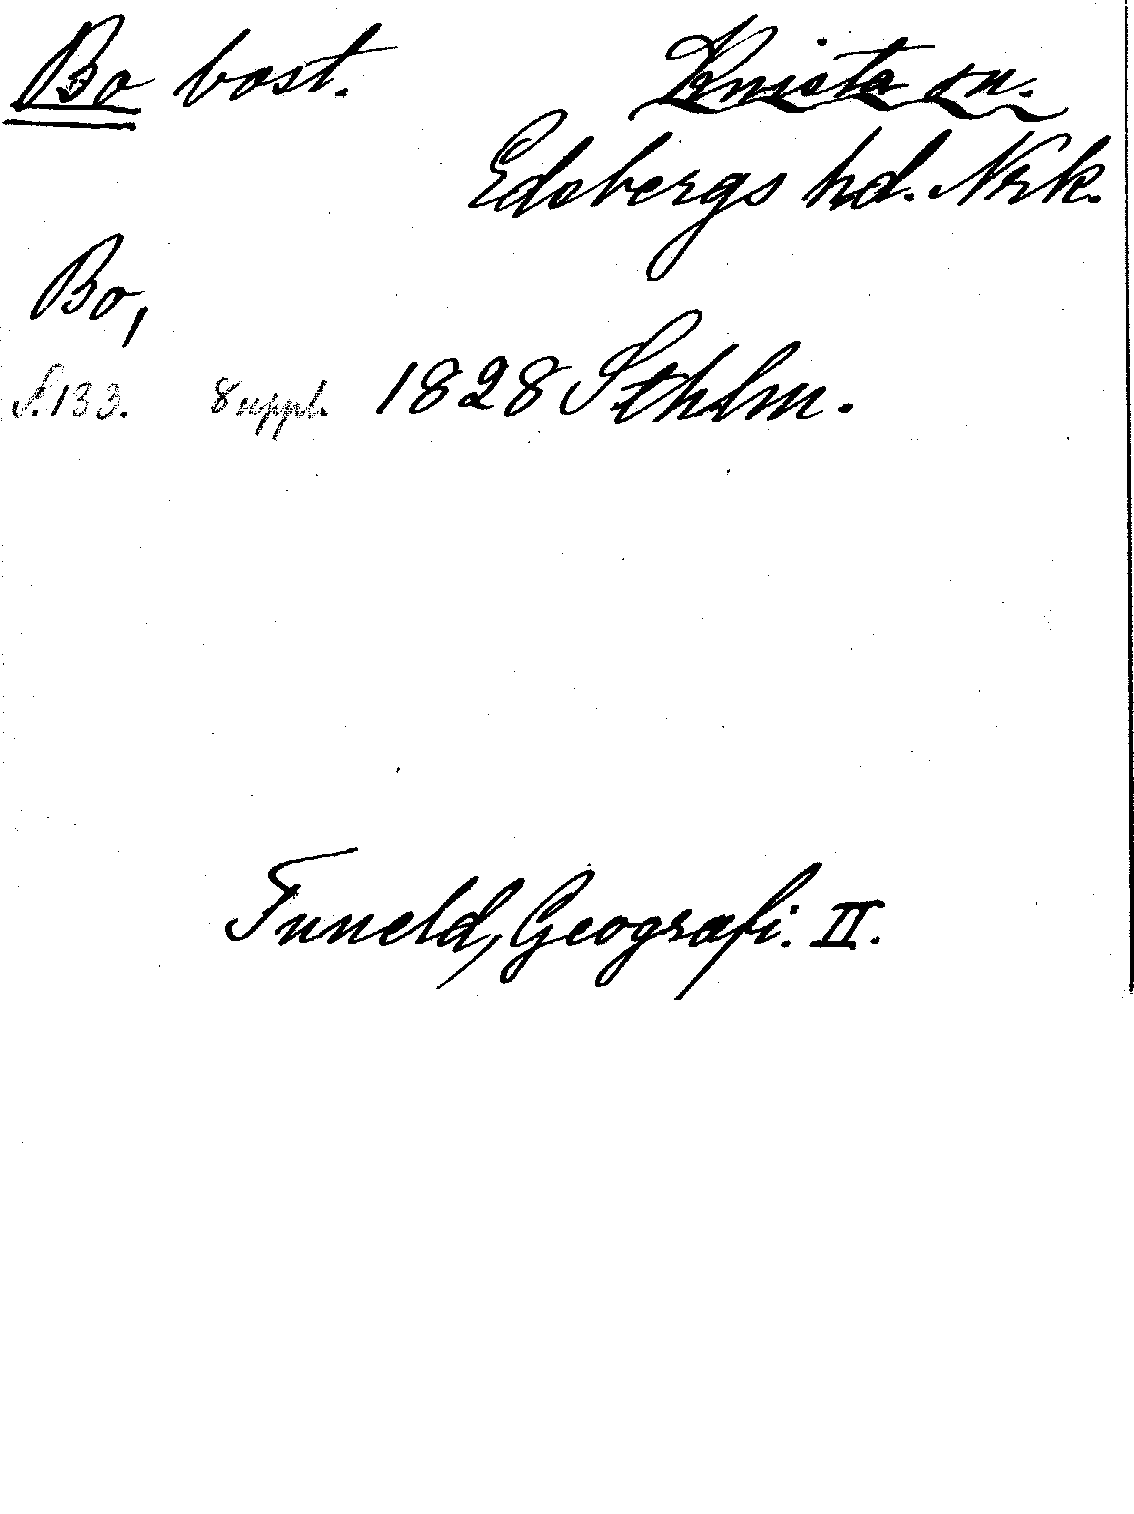 Bo bost. Knista sn.
Edsbergs hd. Nrk.
Bo,
S. 133. 8 uppl. 1828 Sthlm.
Tuneld, Geografi. II.